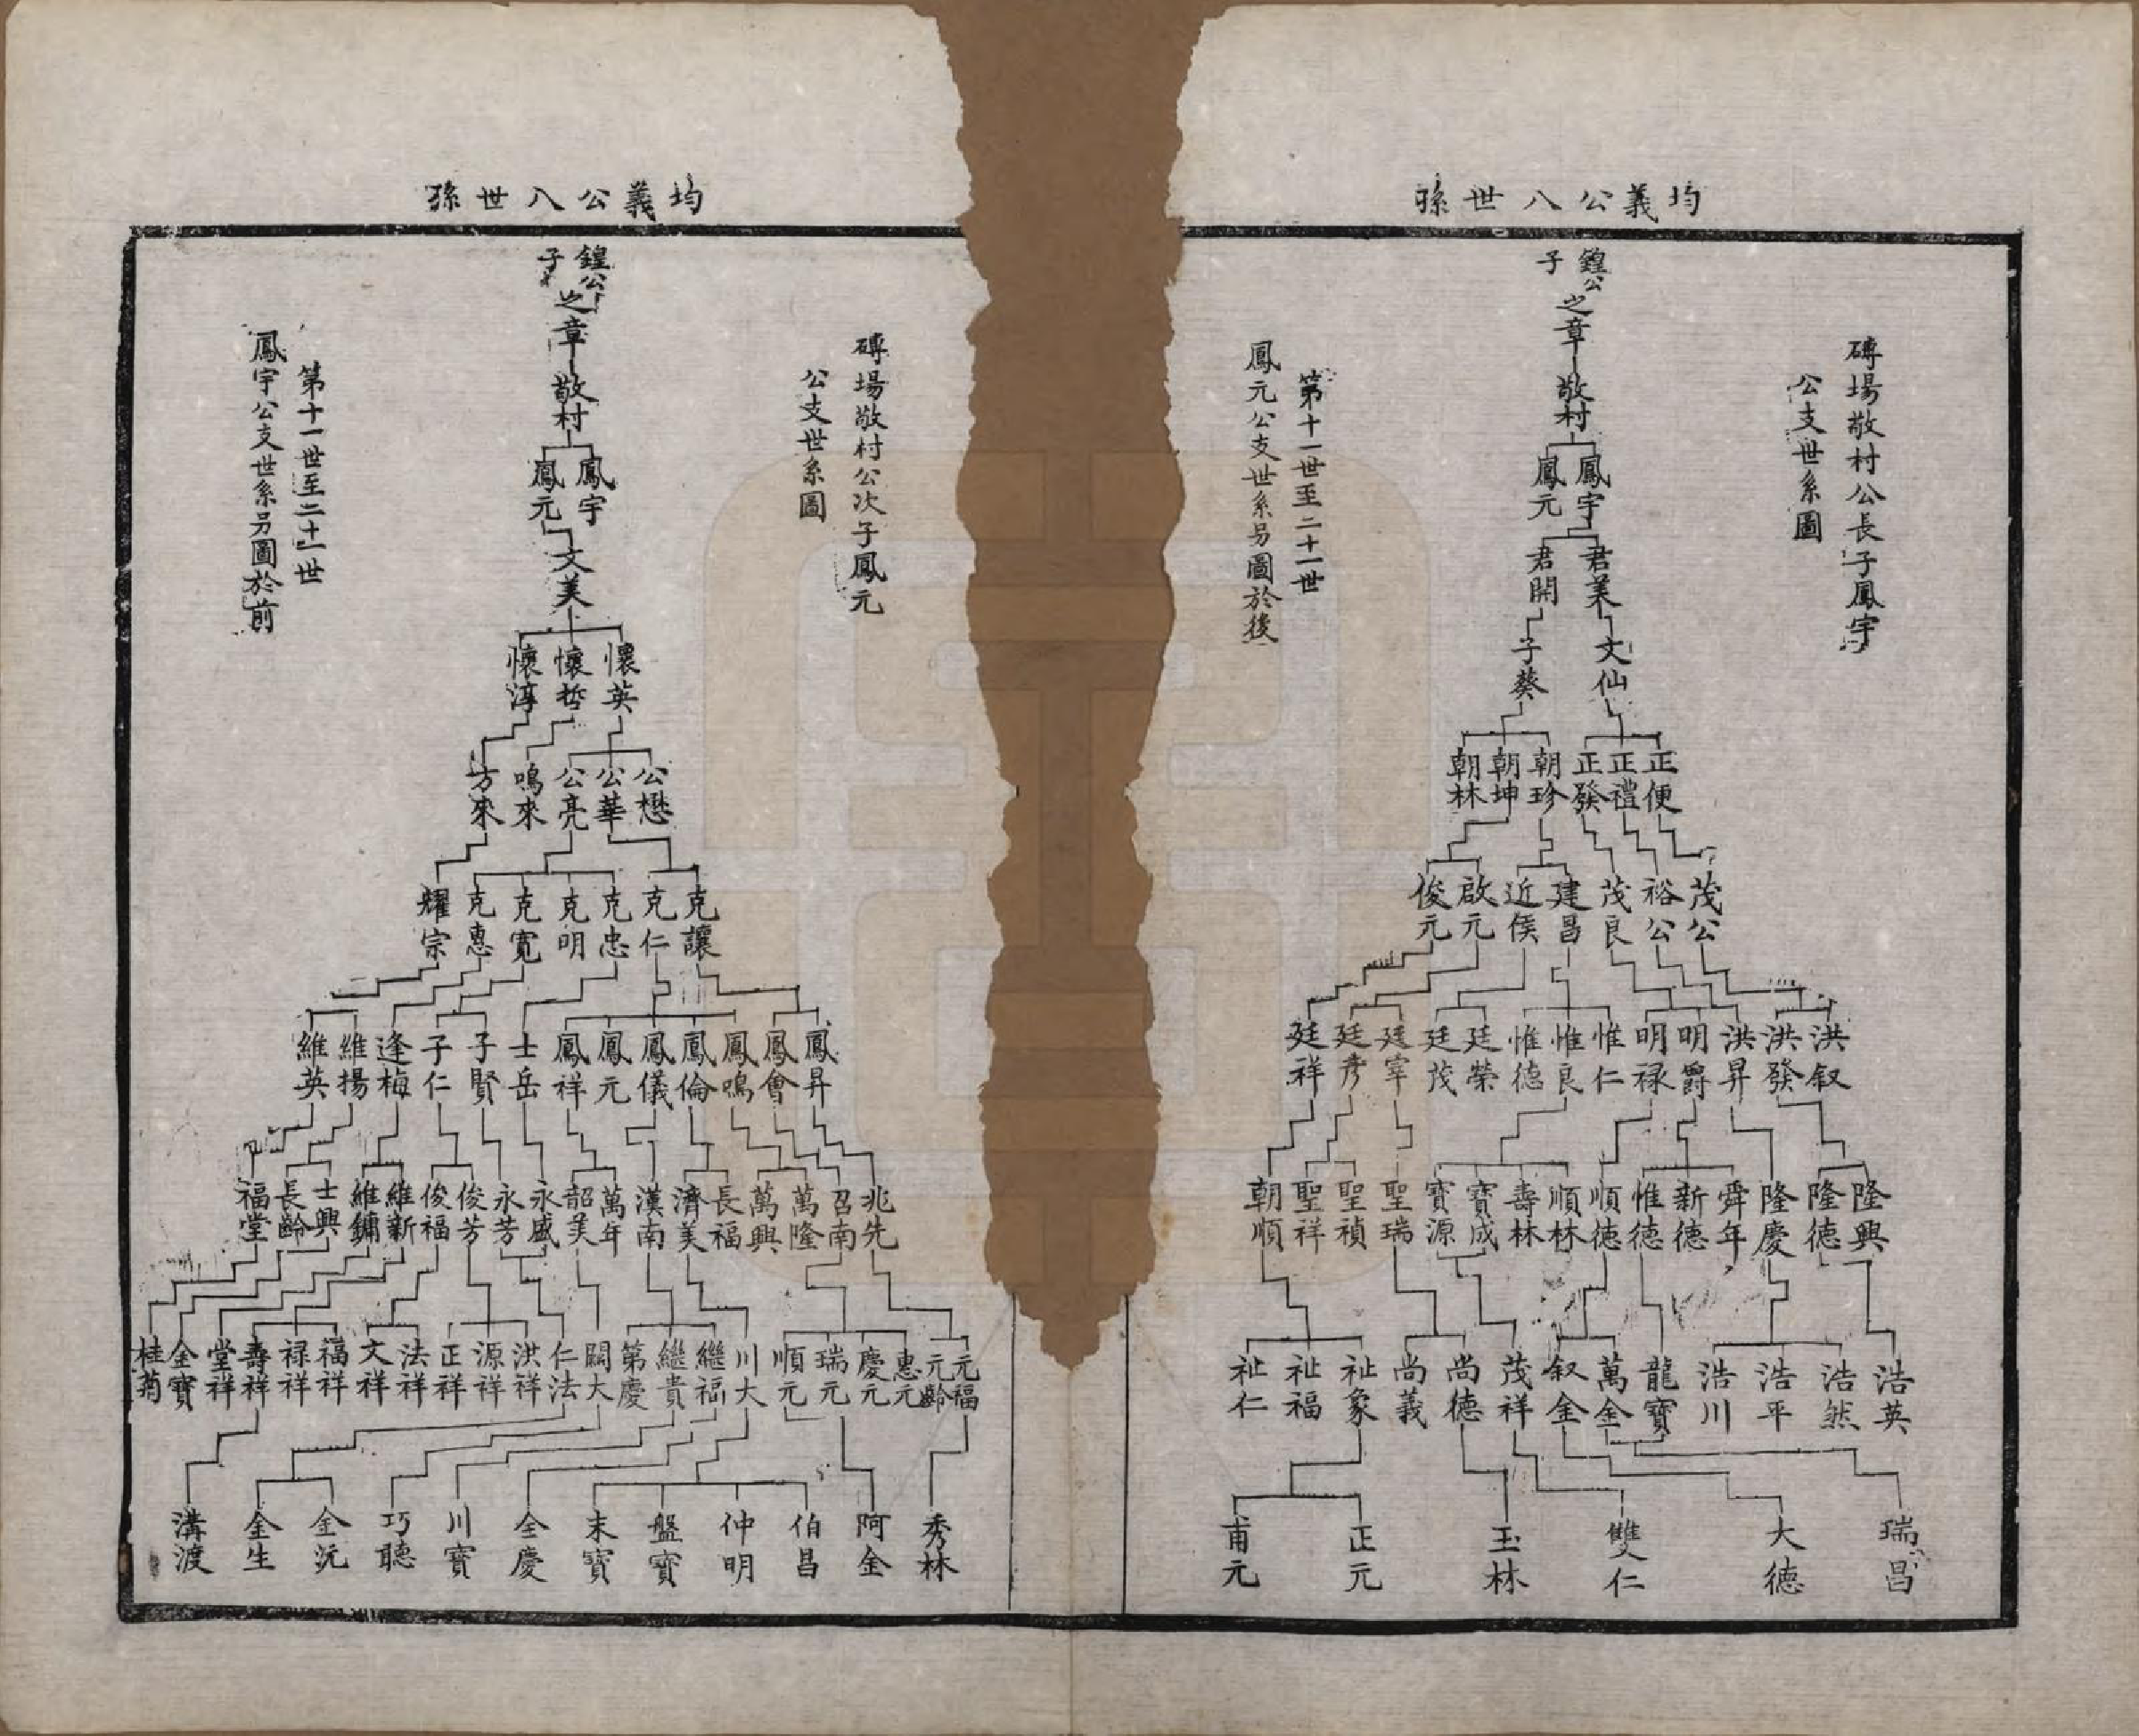 均義公八世孫
磚場敬村公長子鳳宇
公支世系圖
鍠公子
之章
敬村
鳳宇 鳳元
君美 君開
文仙 子葵
正便 正禮 正發 朝珍 朝坤 朝林
茂公 裕公 茂良 建昌 近侯 啟元 俊元
洪叙 洪發 洪昇 明爵 明禄 惟仁 惟良 惟德 廷榮 廷茂 廷宰 廷彥 廷祥
隆興 隆德 隆慶 舜年 新德 惟德 順德 順林 壽林 寶成 寶源 聖瑞 聖禎 聖祥 朝順
浩英 浩然 浩平 浩川 龍寶 萬金 叙金 茂祥 尚德 尚義 祉象 祉福 祉仁
瑞昌 大德 雙仁 玉林 正元 甫元
第十一世至二十一世
鳳元公支世系另圖於後
均義公八世孫
磚場敬村公次子鳳元
公支世系圖
鍠公子
之章
敬村
鳳宇 鳳元
文美
懷英 懷哲 懷淳
公懋 公華 公亮 鳴來 方來
克讓 克仁 克忠 克明 克寬 克惠 耀宗
鳳昇 鳳會 鳳鳴 鳳倫 鳳儀 鳳元 鳳祥 士岳 子賢 子仁 逢梅 維揚 維英
兆先 召南 萬隆 萬興 長福 濟美 漢南 萬年 韶美 永盛 永芳 俊芳 俊福 維新 維鏞 士興 長齡 福堂
元福 元齡 惠元 慶元 瑞元 順元 川大 繼福 繼貴 第慶 開大 仁法 洪祥 源祥 正祥 法祥 文祥 福祥 禄祥 壽祥 堂祥 金寶 桂菊
秀林 阿金 伯昌 仲明 盤寶 末寶 全慶 川寶 巧聽 金沅 金生 溝渡
第十一世至二十一世
鳳宇公支世系另圖於前